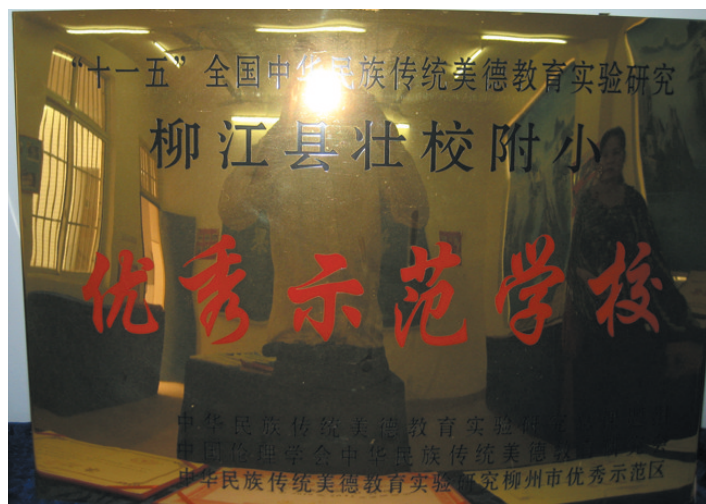 “十一五”全国中华民族传统美德教育实验研究
柳江县壮校附小
优秀示范学校
中华民族传统美德教育实验研究
中国伦理学会中华民族传统美德教育
中华民族传统美德教育实验研究柳州市优秀示范区